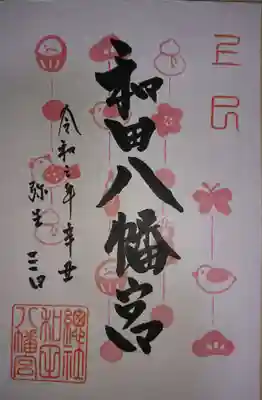 上巳
和田八幡宮
令和三年辛丑
弥生 三日
總社
和田
八幡宮